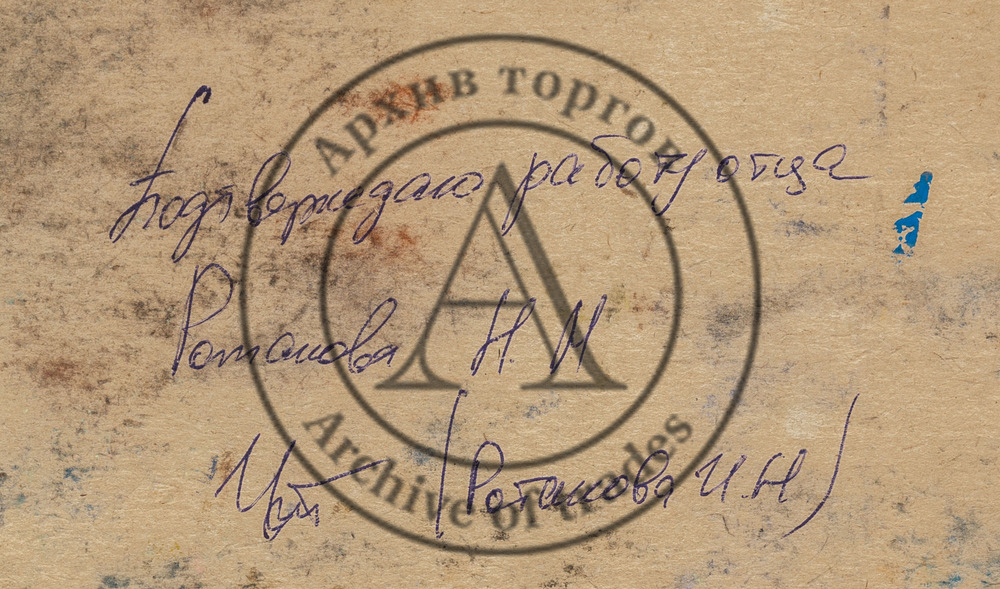 Архив торгов
Подтверждаю работу отца
Ротанова Н. М
(Ротанова И.Н)
Archive of trades